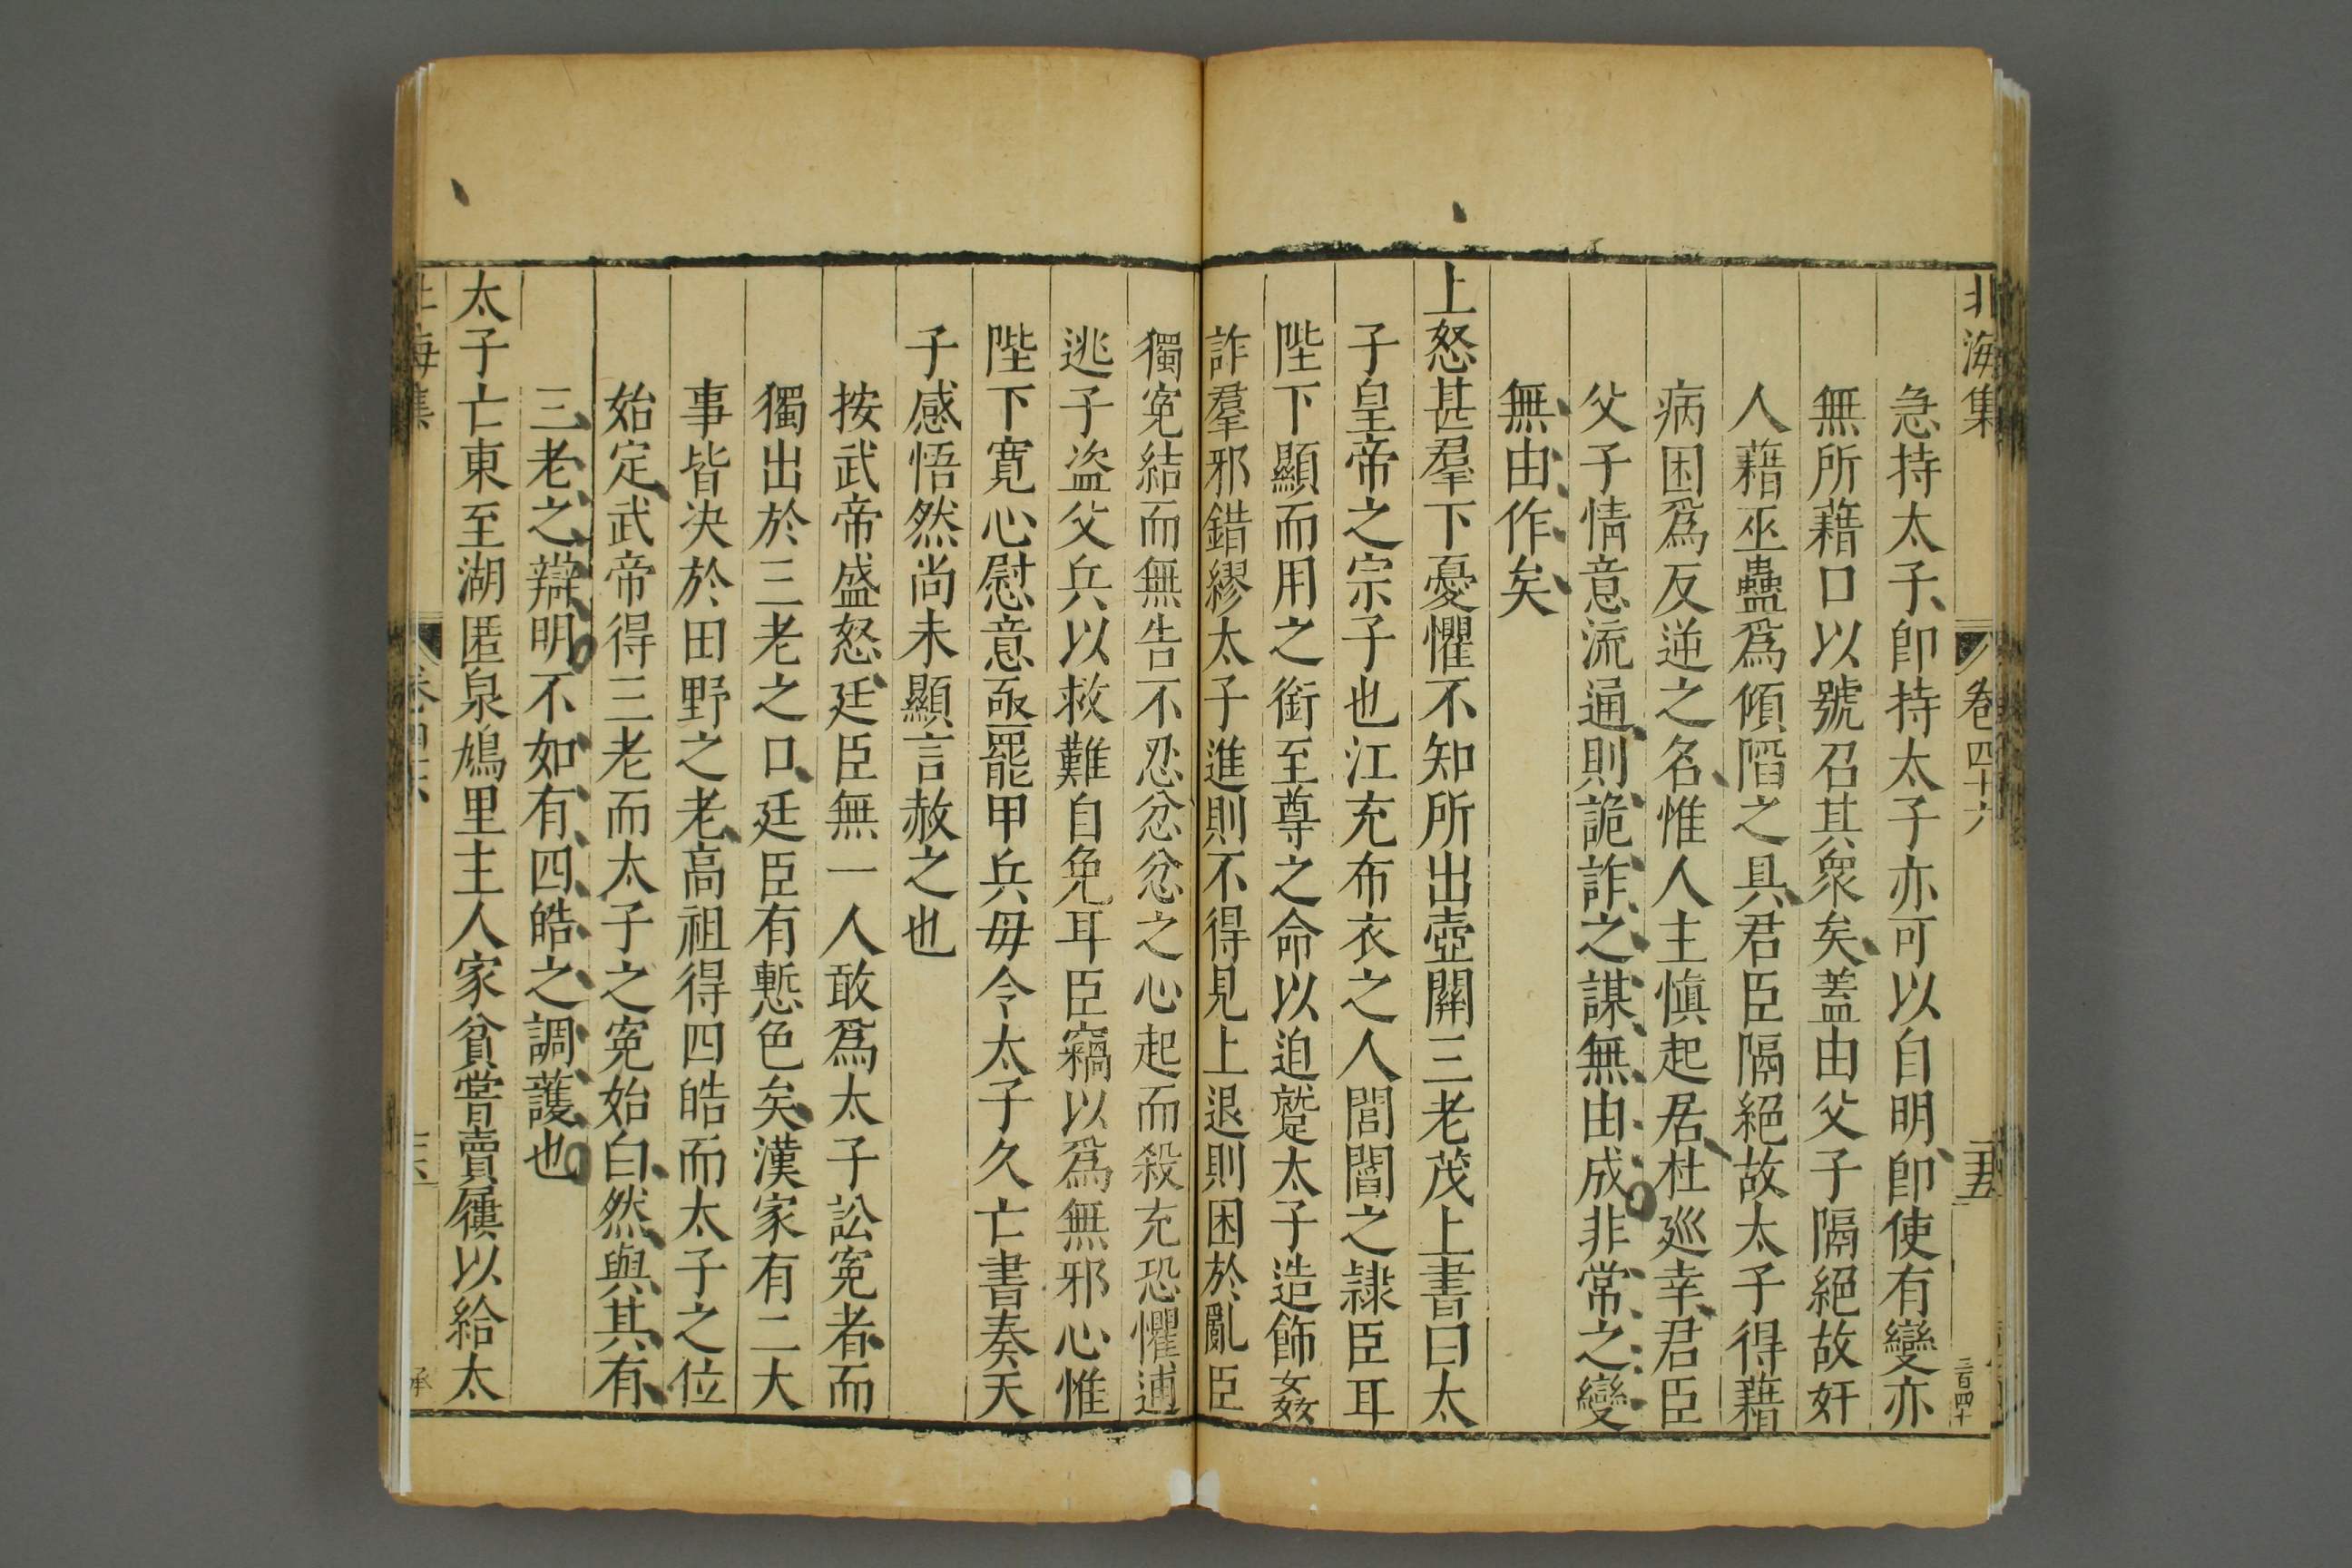 北海集 卷四十六 二五 三百四十
急持太子卽持太子亦可以自明卽使有變亦
無所藉口以號召其衆矣蓋由父子隔絕故奸
人藉巫蠱爲傾陷之具君臣隔絕故太子得藉
病困爲反逆之名惟人主愼起居杜巡幸君臣
父子情意流通則詭詐之謀無由成非常之變
無由作矣
上怒甚羣下憂懼不知所出壺關三老茂上書曰太
子皇帝之宗子也江充布衣之人閭閻之隷臣耳
陛下顯而用之銜至尊之命以迫蹵太子造飾姦
詐羣邪錯繆太子進則不得見上退則困於亂臣
獨寃結而無告不忍忿忿之心起而殺充恐懼逋
逃子盜父兵以救難自免耳臣竊以爲無邪心惟
陛下寬心慰意亟罷甲兵毋令太子久亡書奏天
子感悟然尚未顯言赦之也
按武帝盛怒廷臣無一人敢爲太子訟寃者而
獨出於三老之口廷臣有慙色矣漢家有二大
事皆決於田野之老高祖得四皓而太子之位
始定武帝得三老而太子之寃始白然與其有
三老之辯明不如有四皓之調護也
太子亡東至湖匿泉鳩里主人家貧嘗賣屨以給太
北海集 卷四十六 二六 承